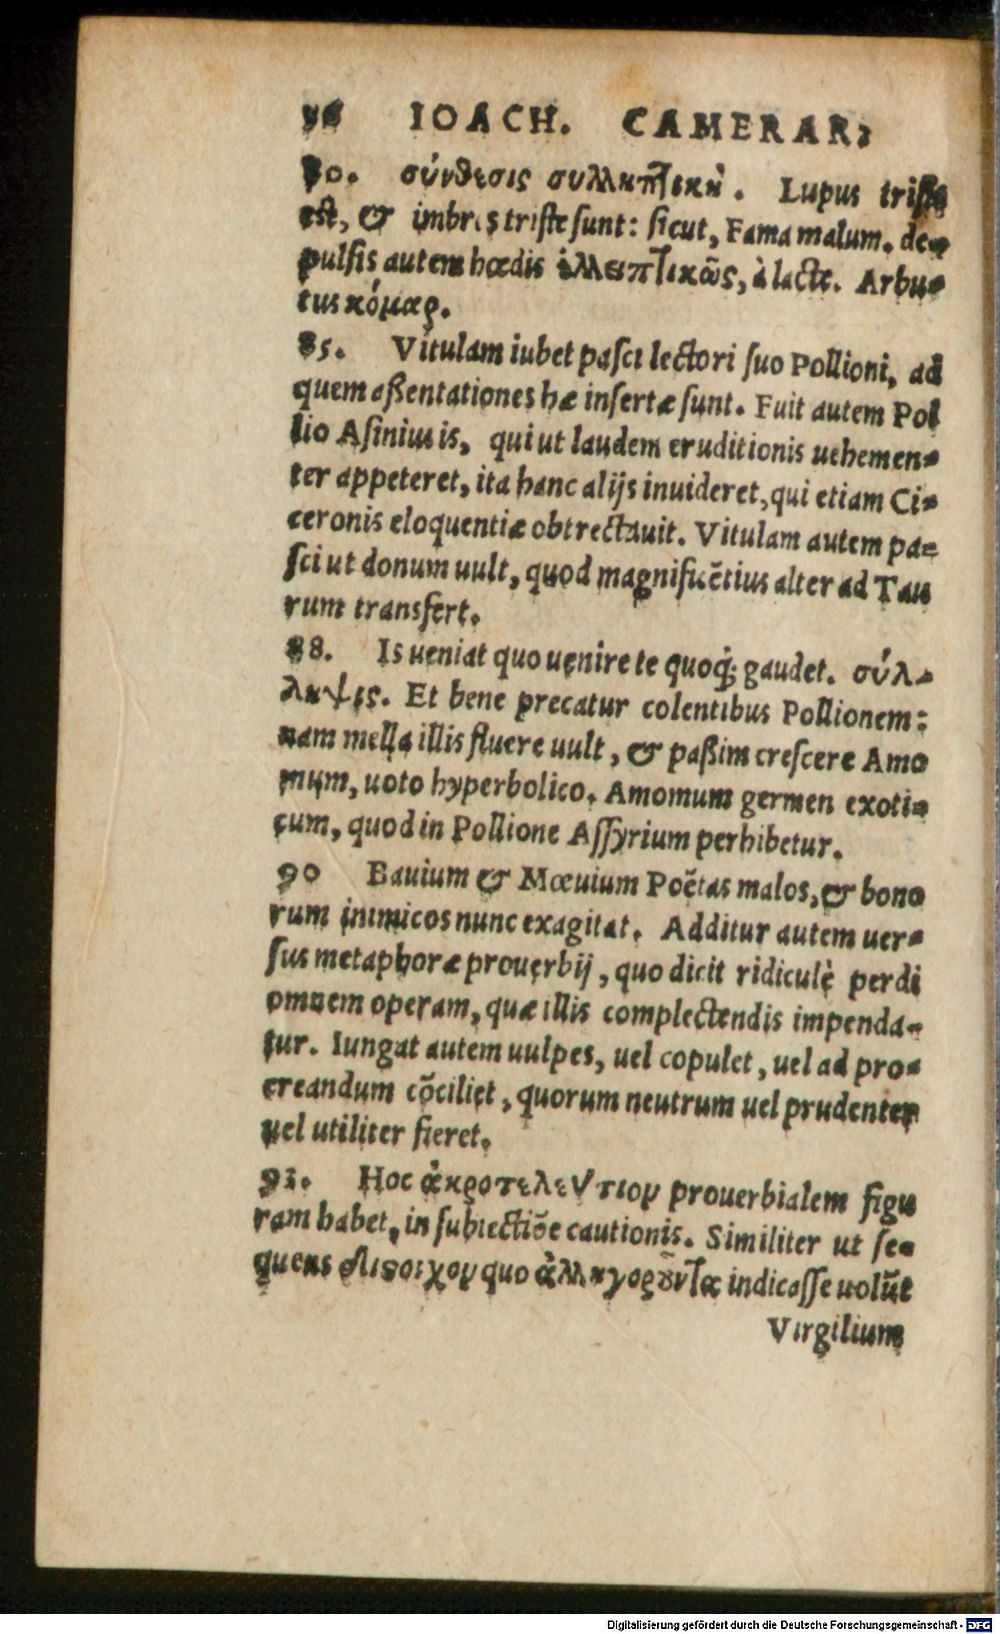 56 IOACH. CAMERARI
80. σύνθεσις συλληπτικὴ. Lupus triste
est, & imbres triste sunt: sicut, Fama malum. de-
pulsis autem hœdis ἐλλειπτικῶς, à lacte. Arbu-
tus κόμαρ.
85. Vitulam iubet pasci lectori suo Pollioni, ad
quem aßentationes hæ insertæ sunt. Fuit autem Pol
lio Asinius is, qui ut laudem eruditionis uehemen-
ter appeteret, ita hanc alijs inuideret, qui etiam Ci-
ceronis eloquentiæ obtrectauit. Vitulam autem pa-
sci ut donum uult, quod magnificẽtius alter ad Tau
rum transfert.
88. Is ueniat quo uenire te quoq; gaudet. σύλ-
ληψις. Et bene precatur colentibus Pollionem:
nam mella illis fluere uult, & paßim crescere Amo
mum, uoto hyperbolico. Amomum germen exoti-
cum, quod in Pollione Assyrium perhibetur.
90 Bauium & Mœuium Poëtas malos, & bono
rum inimicos nunc exagitat. Additur autem uer-
sus metaphoræ prouerbij, quo dicit ridiculè perdi
omnem operam, quæ illis complectendis impenda-
tur. Iungat autem uulpes, uel copulet, uel ad pro-
creandum cõciliet, quorum neutrum uel prudenter
uel utiliter fieret.
93. Hoc ἀκροτελεύτιον prouerbialem figu
ram habet, in subiectiõe cautionis. Similiter ut se-
quens δίστιχον quo ἀλληγοροῦντα indicasse uolũt
Virgilium
Digitalisierung gefördert durch die Deutsche Forschungsgemeinschaft - DFG